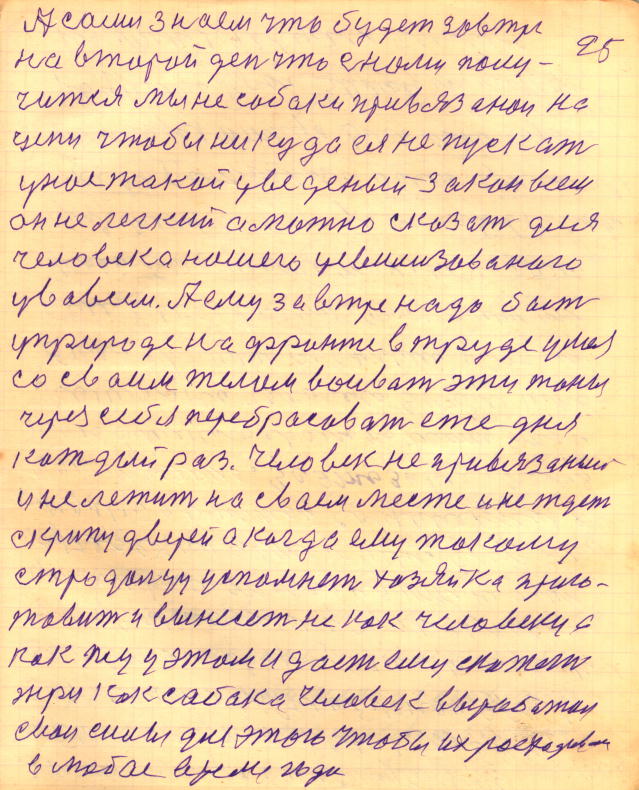 А сами знаем что будет завтри
25
на второй ден что с нами полу-
чится мы не собаки привязанои на
цепи чтобы никуда ея не пускат
у нас такой уведеный закон всем
он не легкий а можно сказат для
человека нашего цевилизованого
А ему завтре надо быт
у природе на фронте в труде умея
со сваим телом воиват эти тоны
через себя перебрасоват еже дня
каждый раз. Человек не привязаный
и не лежит на сваем месте и не ждет
скрипу дверей а когда ему такому
хозяйка приго-
товит и вынесет не как человеку а
как псу у этом и даст ему скажет
жри как сабака Человек выработал
свои силы для этого чтобы их
в любое время года